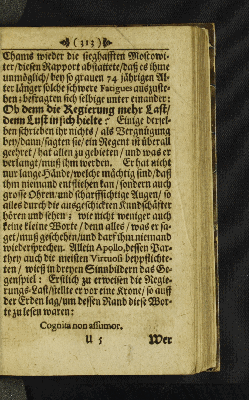 (313)
Chams wieder die sieghafften Moscowi-
ter/diesen Rapport abstattete/daß es ihme
unmöglich/bey so grauen 74 jährigen Al-
ter länger solche schwere Fatigues auszuste-
hen: befragten sich selbige unter einander:
Ob denn die Regierung mehr Last/
denn Lust in sich hielte? Einige dersel-
ben schrieben ihr nichts/als Vergnügung
bey/dann/sagten sie/ein Regent ist überall
geehret/hat allen zu gebieten/und was er
verlangt/muß ihm werden. Er hat nicht
nur lange Hände/welche mächtig sind/daß
ihm niemand entfliehen kan/sondern auch
grosse Ohren und scharffsichtige Augen/so
alles durch die ausgeschickten Kundschafter
hören und sehen; wie nicht weniger auch
keine kleine Worte/denn alles/was er sa-
get/muß geschehen/und darf ihm niemand
wiedersprechen. Allein Apollo, dessen Par-
they auch die meisten Virtuosi beypflichte-
ten/wieß in dreyen Sinnbildern das Ge-
genspiel: Erstlich zu erweisen die Regie-
rungs-Last/stellte er vor eine Krone/so auff
der Erden lag/um dessen Rand diese Wor-
te zu lesen waren:
Cognita non assumor.
U 5 Wer